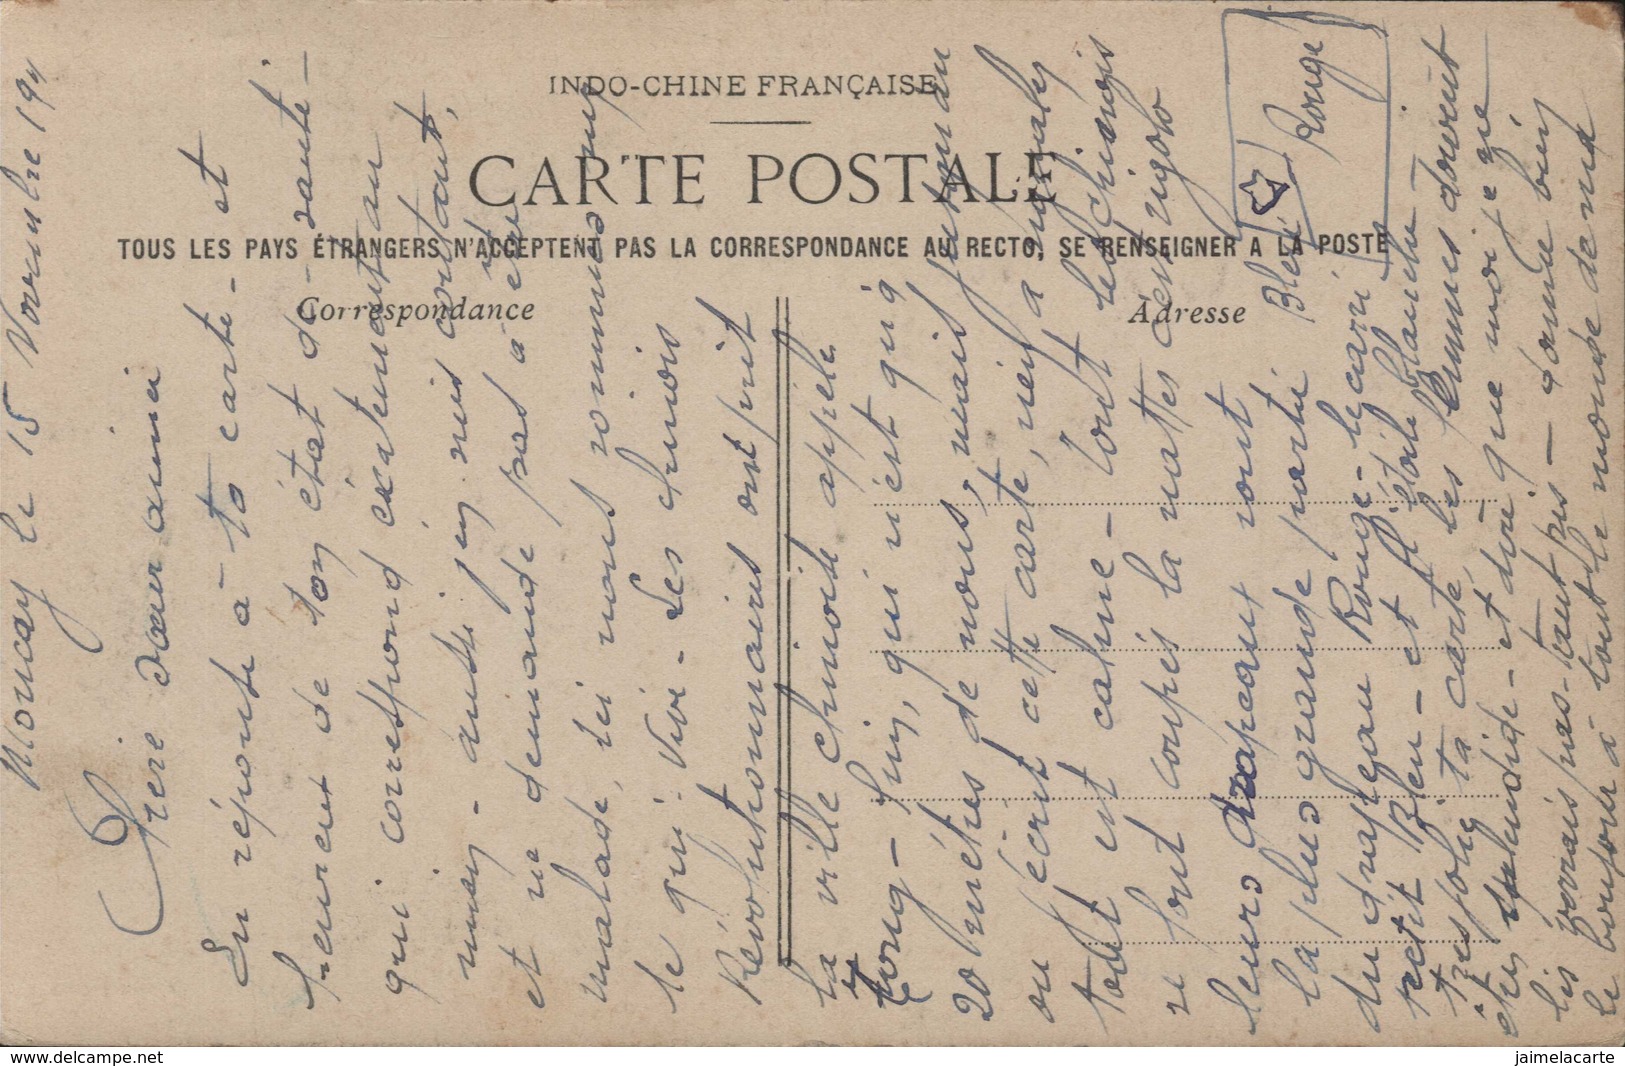 INDO-CHINE FRANÇAISE
CARTE POSTALE
TOUS LES PAYS ÉTRANGERS N'ACCEPTENT PAS LA CORRESPONDANCE AU RECTO, SE RENSEIGNER A LA POSTE
Correspondance
Adresse
Moncay le 15 Novembre 191
Chere sœur aimée
En réponse à ta carte - et
heureux de ton état de santé -
qui correspond éxatement au
mien - aussi j'en suis contant,
et ne demande pas à etre
malade, ici nous sommes sur
le qui-vive - Les chinois
Révolutionnaires ont prit
la ville chinoise appele
Tong-hin, qui n'est qu'à
20 mètres de nous, mais jusqu'au
où j'écrit cette carte, rien a signaler
tout est calme - tout les chinois
se font coupés la nattes c'est rigolo
leurs drapeaux sont
la plus grande partie
du drapeau Rouge - le carré
petit Bleu - et l'étoile blanche
Bleu
Rouge
très jolie ta carte, les femmes doivent
êtres splendide - et dire que moi je ne
les verrais pas - tant pis - donne bien
le bonjour à tout le monde de ma
www.delcampe.net
jaimelacarte